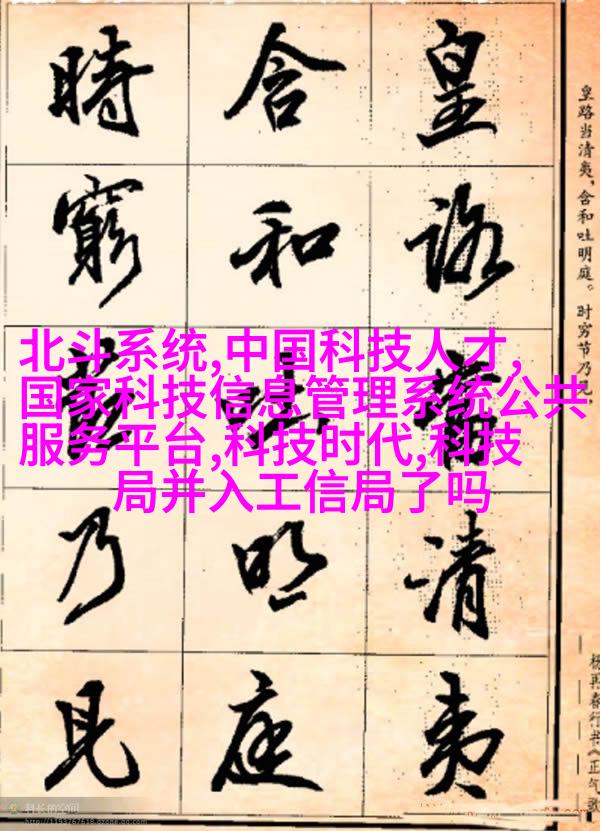 北斗系统,中国科技人才,
国家科技信息管理系统公共
服务平台,科技时代,科技
局并入工信局了吗
皇路當清夷
含和吐明庭
時窮節乃見
皇路当清夷,含和吐明庭。时穷节乃见,
杨再春行书《正气歌
科长的空间